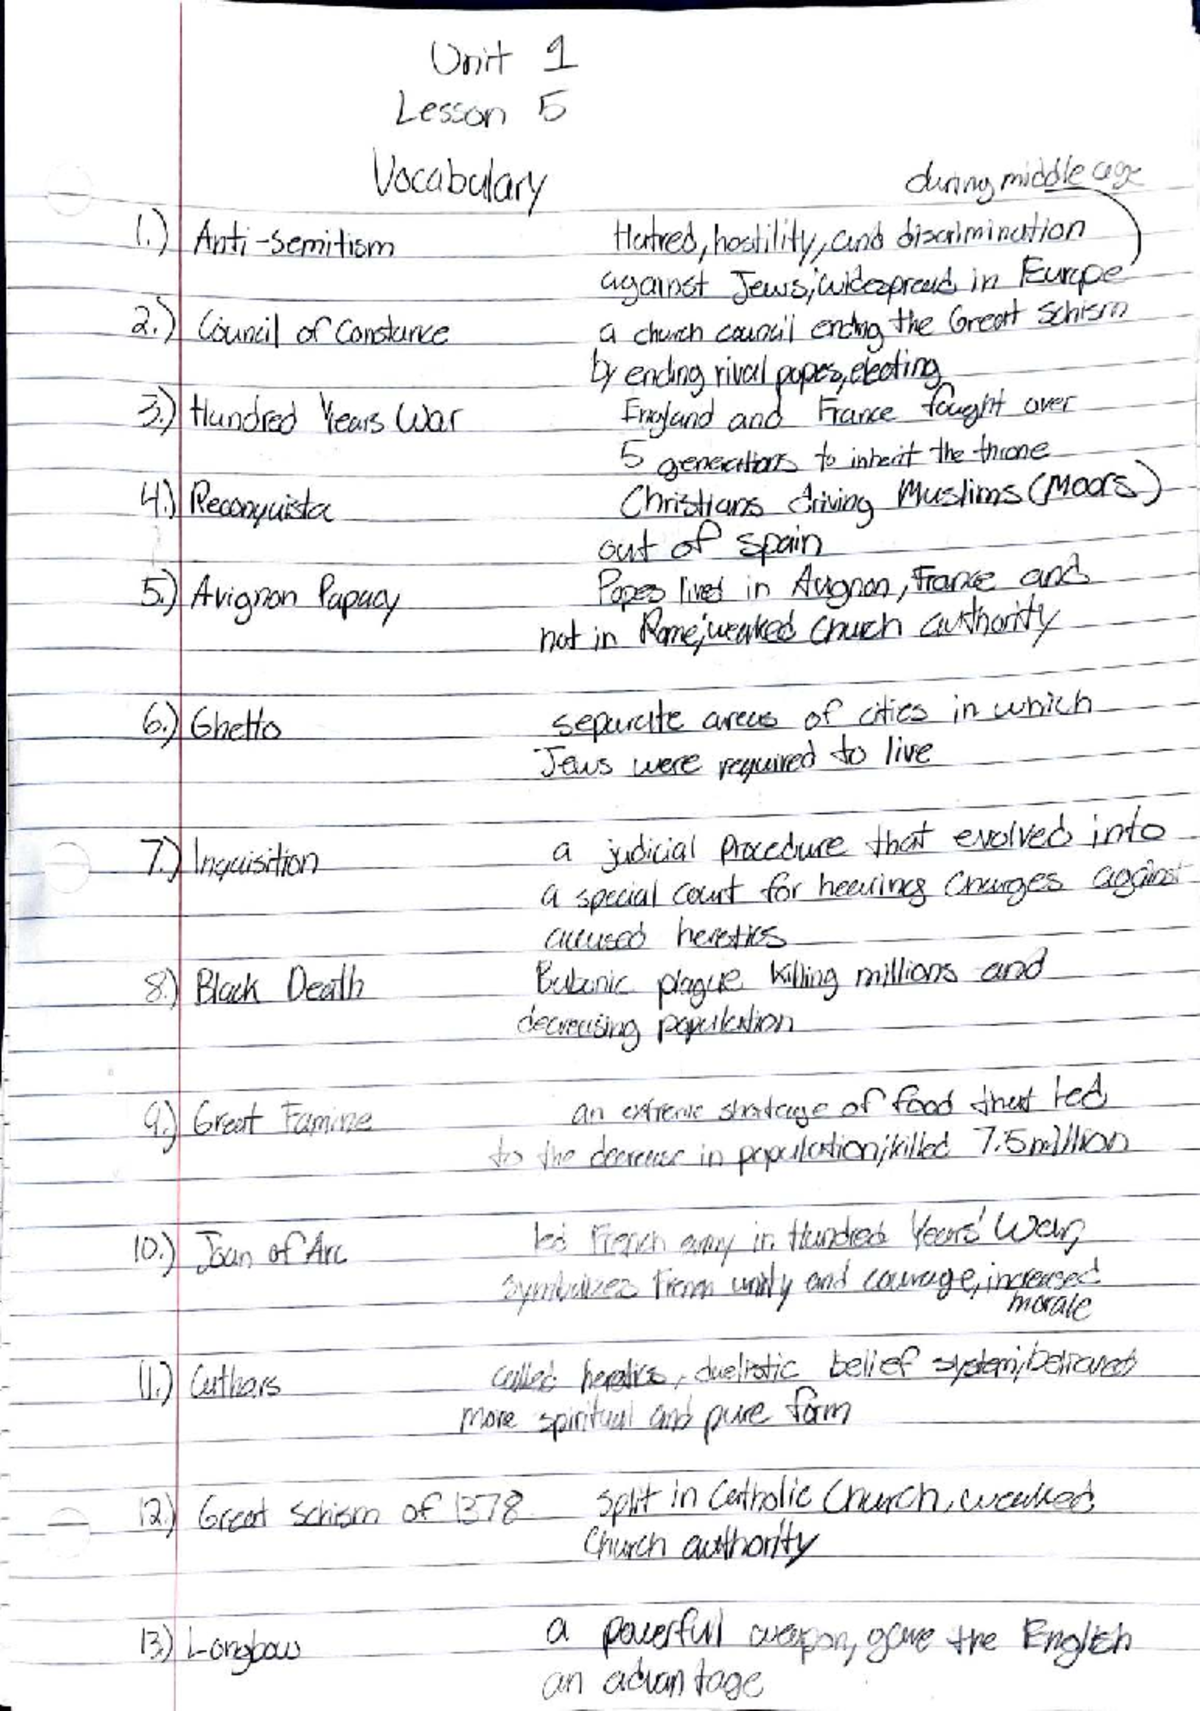 Unit 1
Lesson 5
Vocabulary
during middle age
1.) Anti-semitism Hatred, hostility, and discrimination
against Jews; widespread in Europe
2.) Council of Constance a church council ending the Great Schism
by ending rival popes, electing
3.) Hundred Years War England and France fought over
5 generations to inherit the throne
4.) Reconquista Christians driving Muslims (Moors)
out of spain
5.) Avignon Papacy Popes lived in Avignon, France and
not in Rome; weaked Church authority
6.) Ghetto separate areas of cities in which
Jews were required to live
7.) Inquisition a judicial procedure that evolved into
a special court for hearing charges against
accused heretics
8.) Black Death Bubonic plague killing millions and
decreasing population
9.) Great Famine an extreme shortage of food that led
to the decrease in population; killed 7.5 million
10.) Joan of Arc led French army in Hundred Years' War,
symbolizes French unity and courage, increased
morale
11.) Cathars called heretics, dualistic belief system; believed
more spiritual and pure form
12.) Great Schism of 1378 split in Catholic Church, weaked
Church authority
13.) Longbow a powerful weapon, gave the English
an advantage